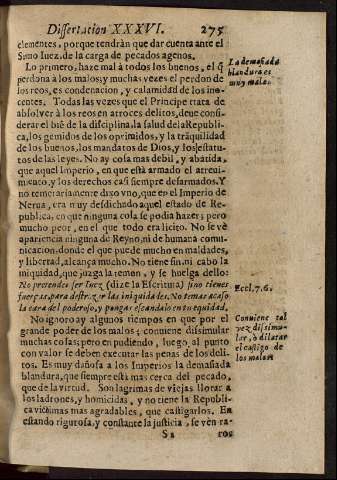 Dissertacion XXXVI. 275
clementes, porque tendràn que dar cuenta ante el
Sumo Iuez, de la carga de pecados agenos.
Lo primero, haze mal à todos los buenos, el q̃
perdona à los malos; y muchas vezes el perdon de
los reos, es condenacion, y calamidad de los ino-
centes. Todas las vezes que el Principe trata de
absolver à los reos en atroces delitos, deve consi-
derar el biẽ de la disciplina, la salud de la Republi-
ca, los gemidos de los oprimidos, y la trãquilidad
de los buenos, los mandatos de Dios, y los esta-
tutos de las leyes. No ay cosa mas debil, y abatida,
que aquel Imperio, en que està armado el atrevi-
miento, y los derechos casi siempre desarmados. Y
no temerariamente dixo vno, que en el Imperio de
Nerua, era muy desdichado aquel estado de Re-
publica, en que ninguna cosa se podia hazer; pero
mucho peor, en el que todo era licito. No se vè
apariencia ninguna de Reyno, ni de humana comu-
nicacion, donde el que puede mucho en maldades,
y libertad, alcança mucho. No tiene fin, ni cabo la
iniquidad, que juzga la temen, y se huelga dello:
No pretendes ser Iuez (dize la Escritura) sino tienes
fuerças, para destrozer las iniquidades. No temas acaso
la cara del poderoso, y pongas escandalo en tu equidad.
No ignoro ay algunos tiempos en que por el
grande poder de los malos; conviene dissimular
muchas cosas; pero en pudiendo, luego, al punto
con valor se deben executar las penas de los deli-
tos. Es muy dañosa à los Imperios la demasiada
blandura, que siempre està mas cerca del pecado,
que de la virtud. Son lagrimas de viejas llorar à
los ladrones, y homicidas, y no tiene la Republi-
ca victimas mas agradables, que castigarlos. En
estando rigurosa, y constante la justicia, se vèn ra-
S2 ros
La demasiada
blandura es
muy mala.
Eccl. 7. 6.
Conviene tal
vez dissimu-
lar, ò dilatar
el castigo de
los malos.